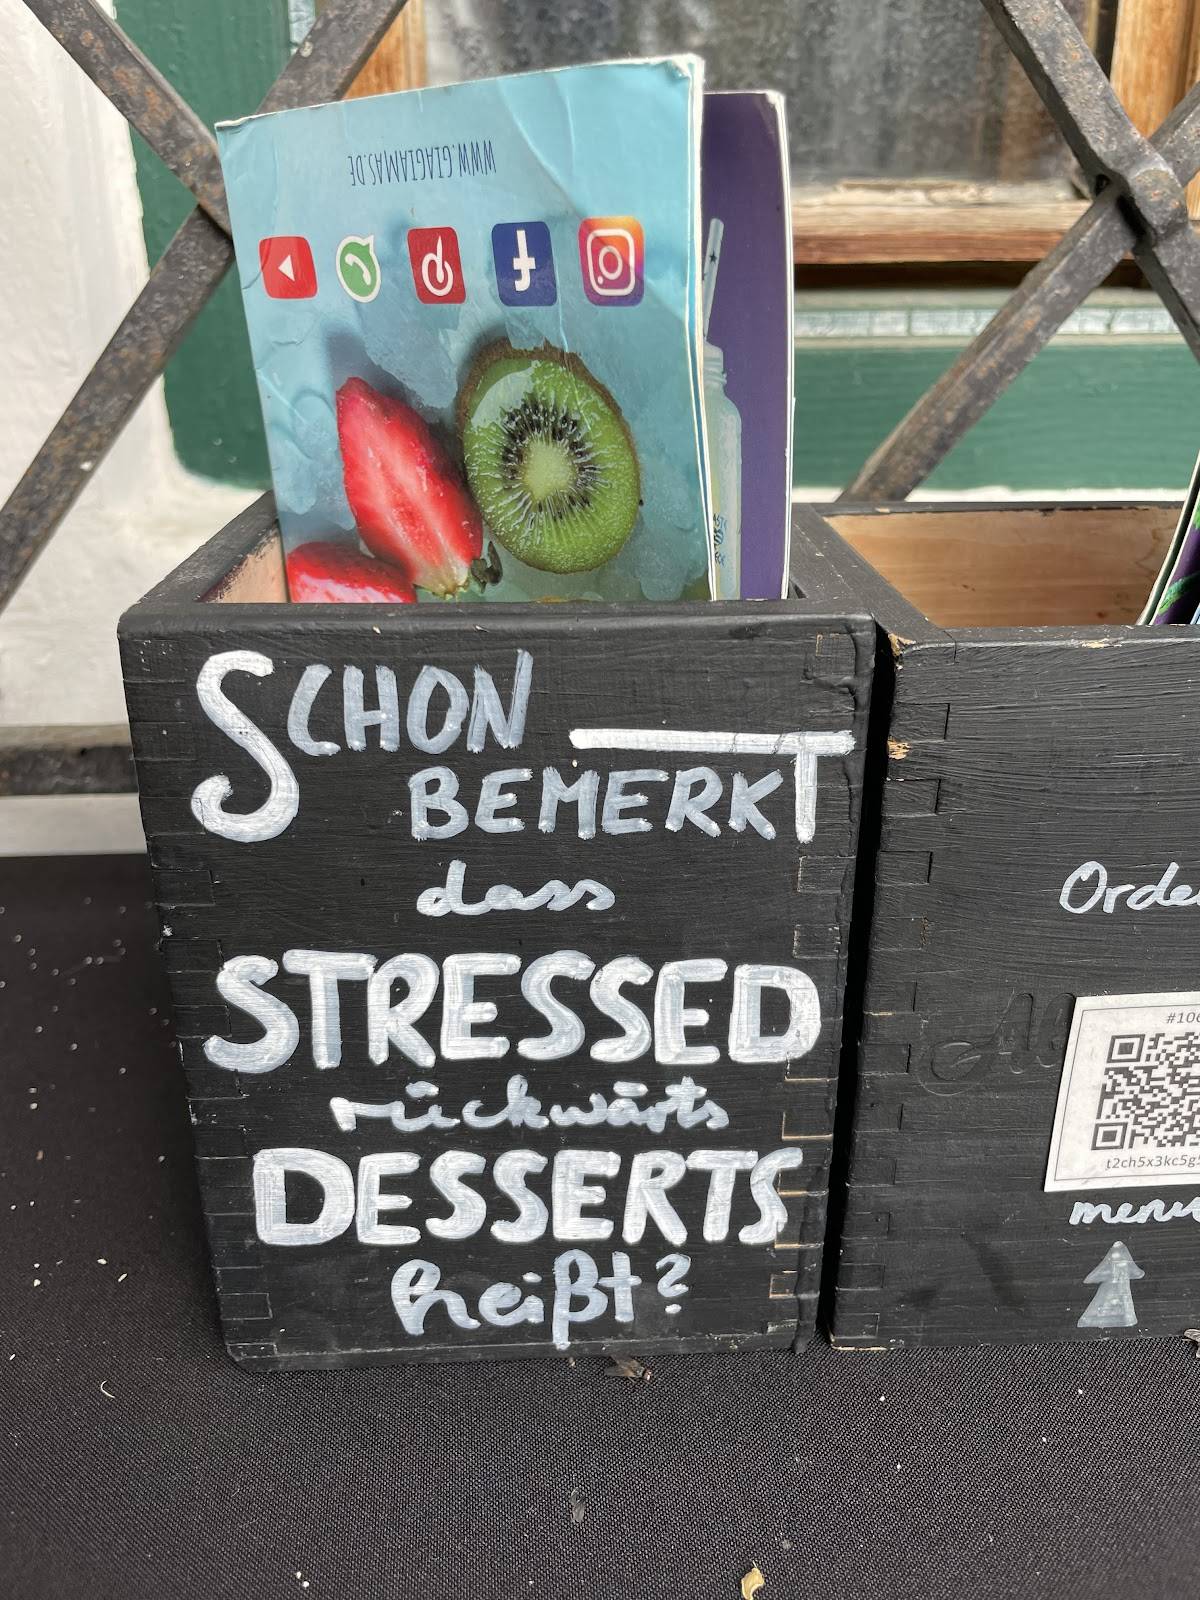 WWW.GIAGIAMAS.DE
SCHON
BEMERKT
dass
STRESSED
rückwärts
DESSERTS
heißt?
#106
t2ch5x3kc5g5